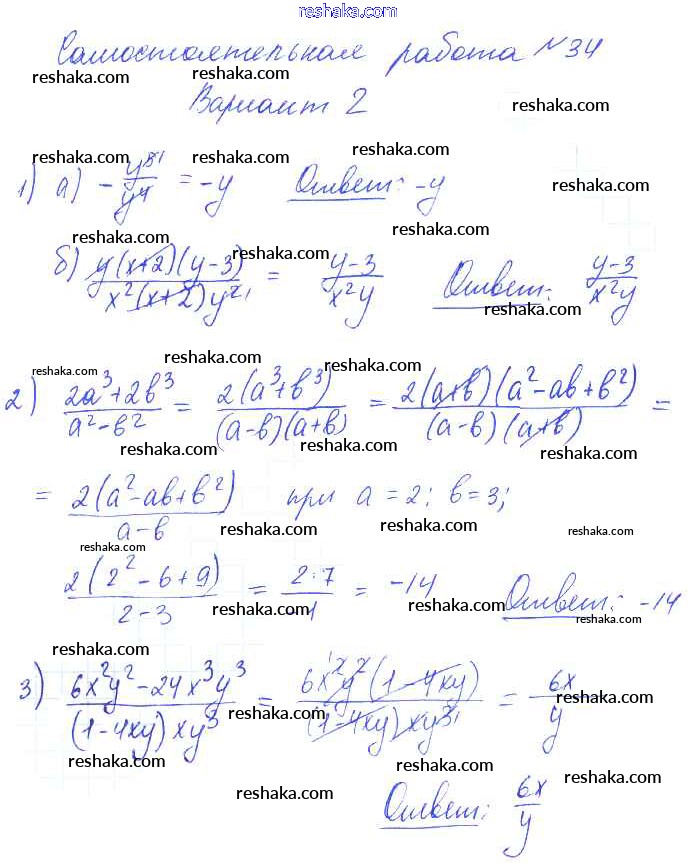 reshaka.com
Самостоятельная работа №34
reshaka.com reshaka.com reshaka.com
Вариант 2
reshaka.com
reshaka.com reshaka.com reshaka.com
1) а) -y⁵/y⁴ = -y Ответ: -y
reshaka.com
reshaka.com reshaka.com reshaka.com
б) y(x+2)(y-3)/x²(x+2)y² = y-3/x²y Ответ: y-3/x²y
reshaka.com
reshaka.com reshaka.com reshaka.com
2) 2a³+2b³/a²-b² = 2(a³+b³)/(a-b)(a+b) = 2(a+b)(a²-ab+b²)/(a-b)(a+b) =
reshaka.com reshaka.com reshaka.com
= 2(a²-ab+b²)/a-b при a=2; b=3;
reshaka.com reshaka.com reshaka.com
2(2²-6+9)/2-3 = 2·7/-1 = -14 Ответ: -14
reshaka.com reshaka.com reshaka.com
reshaka.com reshaka.com reshaka.com
3) 6x²y²-24x³y³/(1-4xy)xy³ = 6x²y²(1-4xy)/(1-4xy)xy³ = 6x/y
reshaka.com reshaka.com reshaka.com
reshaka.com reshaka.com reshaka.com
Ответ: 6x/y
reshaka.com reshaka.com